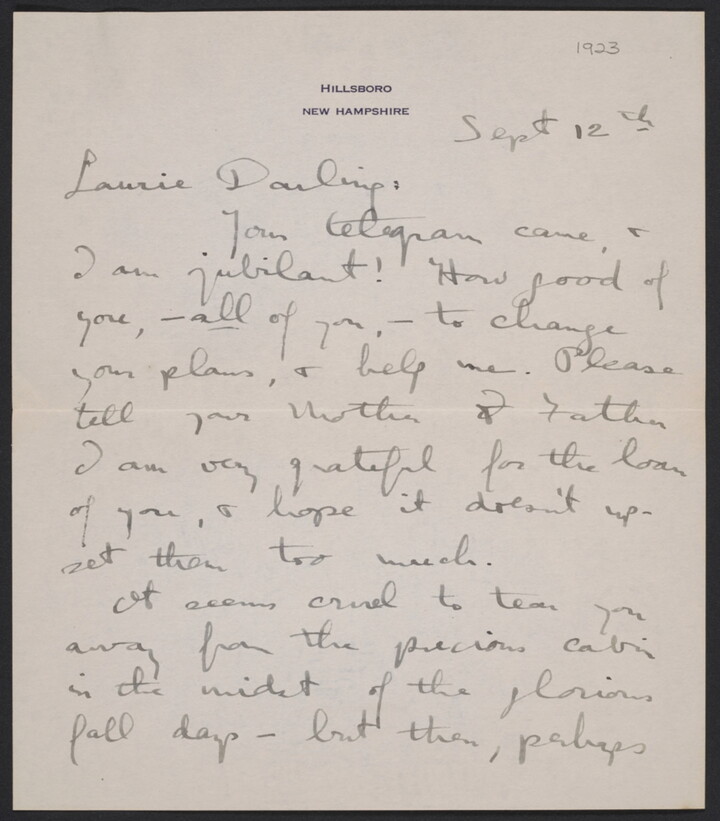 1923
HILLSBORO
NEW HAMPSHIRE
Sept 12th
Laurie Darling:
Your telegram came, &
I am jubilant! How good of
you, – all of you, – to change
your plans, & help me. Please
tell your Mother & Father
I am very grateful for the loan
of you, & hope it doesn't up-
set them too much.
It seems cruel to tear you
away from the precious cabin
in the midst of the glorious
fall days – but then, perhaps